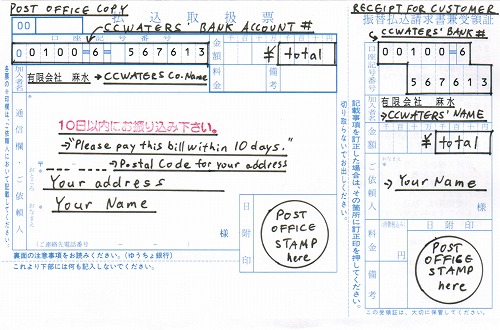 POST OFFICE COPY
払込取扱票
00
CCWATERS' BANK ACCOUNT #
口座記号番号
00100=6=567613
金額
千百十万千百十円
¥total
加入者名
有限会社 麻水→CCWATERS CO. Name
料金
備考
10日以内にお振り込み下さい。
→"Please pay this bill within 10 days."
〒
→Postal Code for your address
通信欄・ご依頼人
おところ
Your address
おなまえ
Your Name
様
(ご連絡先電話番号
日附印
POST OFFICE STAMP here
裏面の注意事項をお読みください。(ゆうちょ銀行)
これより下部には何も記入しないでください。
各票の※印欄は、ご依頼人において記載してください。
切り取らないでお出しください。
記載事項を訂正した場合は、その箇所に訂正印を押してください。
RECEIPT FOR CUSTOMER
振替払込請求書兼受領証
CCWATERS' BANK#
口座記号番号
00100=6
567613
加入者名
有限会社 麻水
→CCWATERS' NAME
金額
千百十万千百十円
¥total
ご依頼人
おなまえ
→Your Name
様
料金
(消費税込み)
円
備考
日附印
POST OFFICE STAMP here
この受領証は、大切に保管してください。